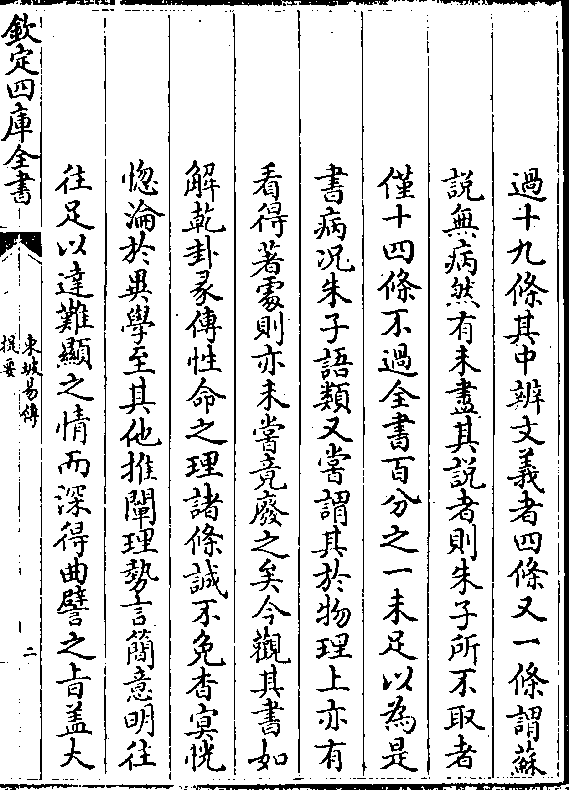 過十九條其中辨文義者四條又一條謂蘇
說無病然有未盡其說者則朱子所不取者
僅十四條不過全書百分之一未足以為是
書病况朱子語類又嘗謂其於物理上亦有
看得著處則亦未嘗竟廢之矣今觀其書如
解乾卦彖傳性命之理諸條誠不免杳冥恍
惚淪於異學至其他推闡理勢言簡意明往
往足以達難顯之情而深得曲譬之旨盖大
欽定四庫全書
東坡易傳
提要
二